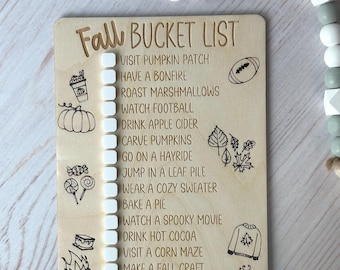 Fall BUCKET LIST
VISIT PUMPKIN PATCH
HAVE A BONFIRE
ROAST MARSHMALLOWS
WATCH FOOTBALL
DRINK APPLE CIDER
CARVE PUMPKINS
GO ON A HAYRIDE
JUMP IN A LEAF PILE
WEAR A COZY SWEATER
BAKE A PIE
WATCH A SPOOKY MOVIE
DRINK HOT COCOA
VISIT A CORN MAZE
MAKE A FALL CRAFT